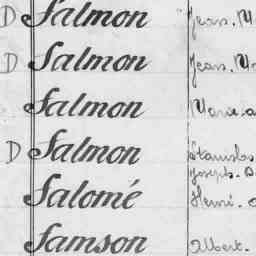 D Salmon Jean. M
D Salmon Jean. M
Salmon Marie. a
D Salmon Stanislas
Joseph. D
Salomé Henri.
Samson Albert.